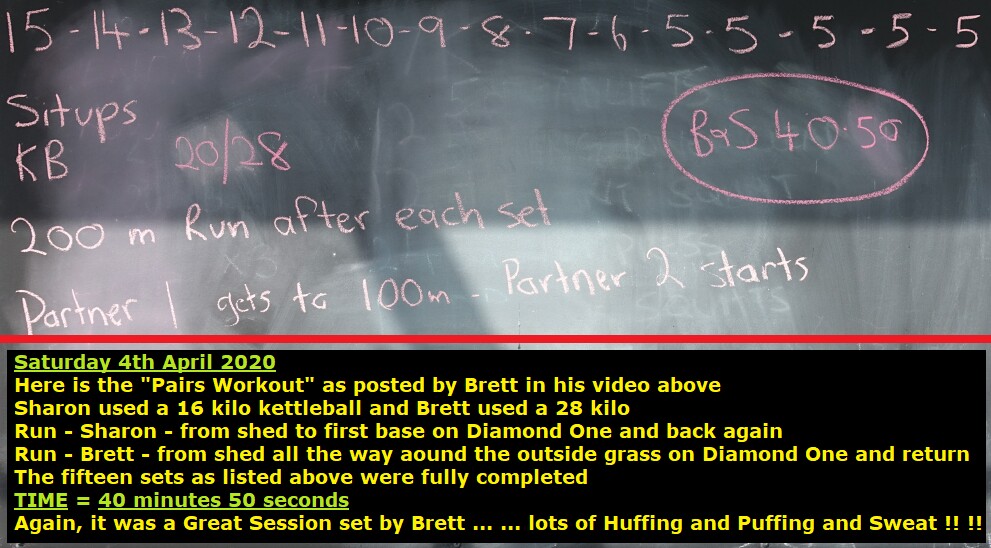 15 - 14 - 13 - 12 - 11 - 10 - 9 - 8 - 7 - 6 - 5 - 5 - 5 - 5 - 5
Situps
KB 20/28
B&S 40.50
200 m Run after each set
Partner 1 gets to 100m - Partner 2 starts
Saturday 4th April 2020
Here is the "Pairs Workout" as posted by Brett in his video above
Sharon used a 16 kilo kettleball and Brett used a 28 kilo
Run - Sharon - from shed to first base on Diamond One and back again
Run - Brett - from shed all the way aound the outside grass on Diamond One and return
The fifteen sets as listed above were fully completed
TIME = 40 minutes 50 seconds
Again, it was a Great Session set by Brett ... ... lots of Huffing and Puffing and Sweat !! !!